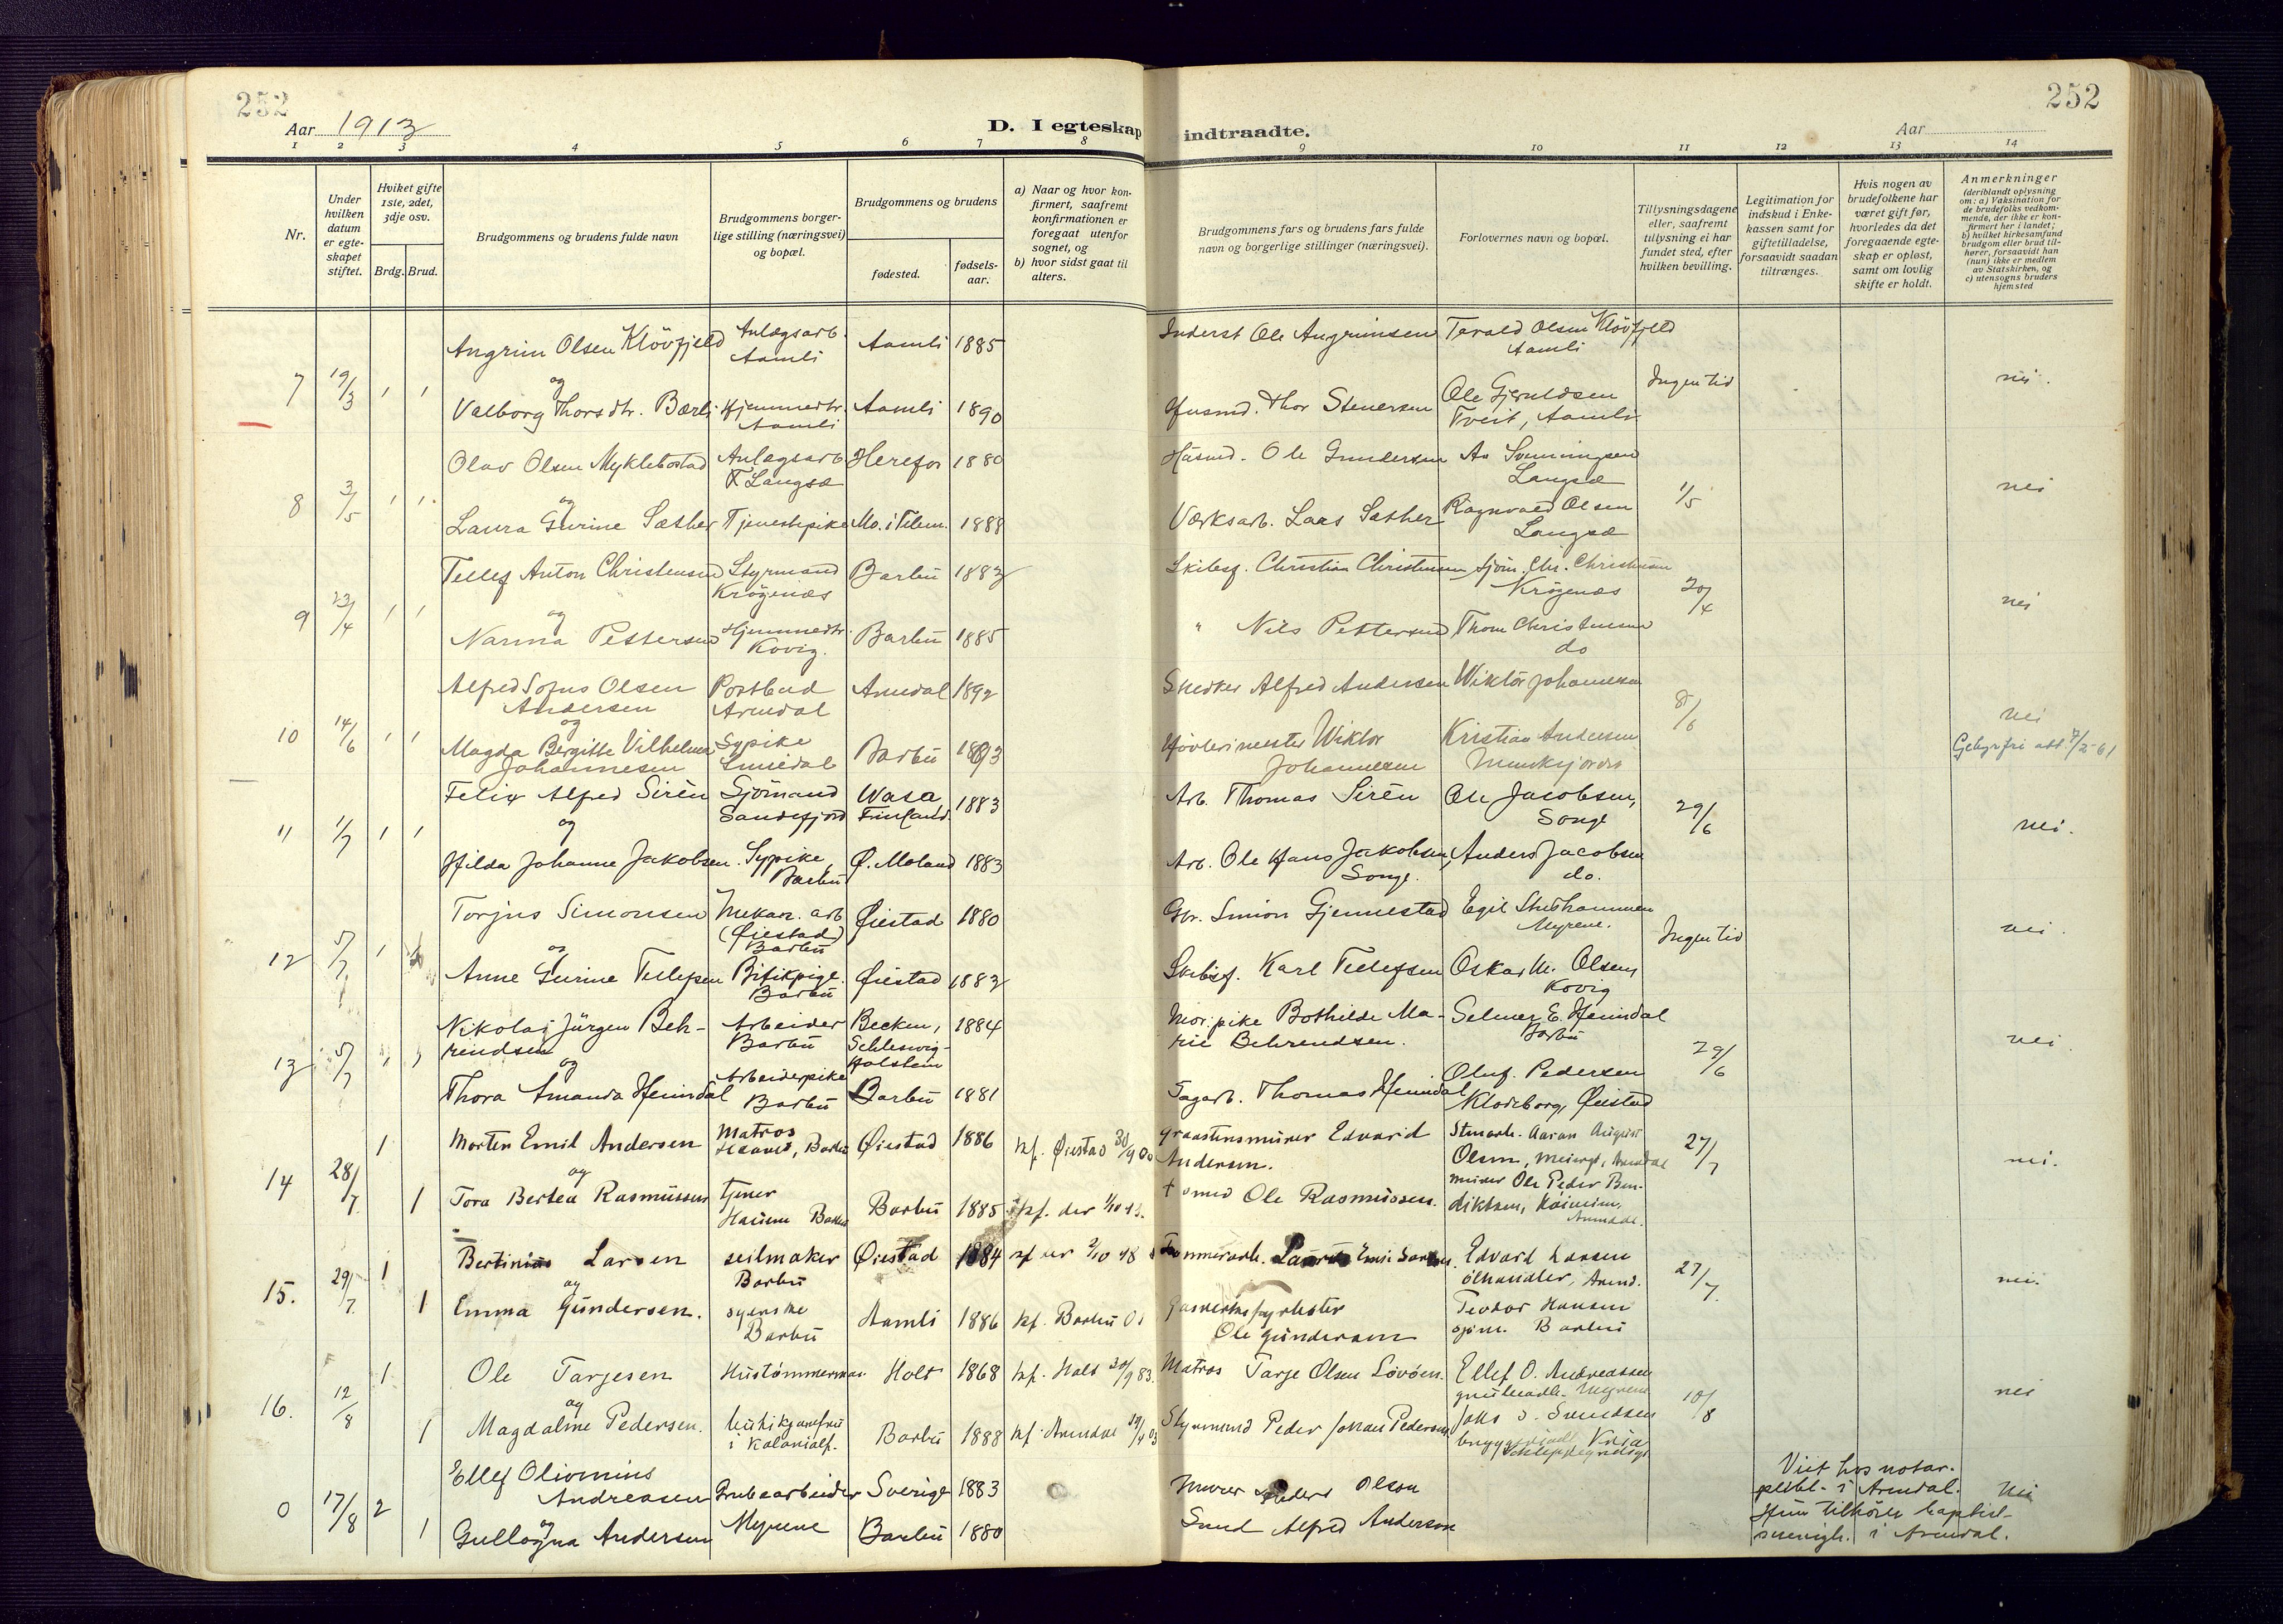 252
252
Aar 1913
D. I egteskap indtraadte.
Aar
1 2 3 4 5 6 7 8 9 10 11 12 13 14
Nr.
Under hvilken datum er egteskapet stiftet.
Hviket gifte 1ste, 2det, 3dje osv.
Brdg. Brud.
Brudgommens og brudens fulde navn
Brudgommens borgerlige stilling (næringsvei) og bopæl.
Brudgommens og brudens
fødested.
fødselsaar.
a) Naar og hvor konfirmert, saafremt konfirmationen er foregaat utenfor sognet, og
b) hvor sidst gaat til alters.
Brudgommens fars og brudens fars fulde navn og borgerlige stillinger (næringsvei).
Forlovernes navn og bopæl.
Tillysningsdagene eller, saafremt tillysning ei har fundet sted, efter hvilken bevilling.
Legitimation for indskud i Enkekassen samt for giftetilladelse, forsaavidt saadan tiltrænges.
Hvis nogen av brudefolkene har været gift før, hvorledes da det foregaaende egteskap er opløst, samt om lovlig skifte er holdt.
Anmerkninger (deriblandt oplysning om: a) Vaksination for de brudefolks vedkommende, der ikke er konfirmert her i landet; b) hvilket kirkesamfund brudgom eller brud tilhører, forsaavidt han (hun) ikke er medlem av Statskirken, og c) utensogns bruders hjemsted
Angrim Olsen Kløvfjeld Anlægsarb. Aamli Aamli 1885 Inderst Ole Angrimsen Tarald Olsen Kløvfjeld Aamli
7 19/3 1 1 og Ingen tid nei.
Valborg Thorsdtr. Bærli Hjemmedtr. Aamli Aamli 1890 Husmd. Thor Stenersen Ole Gjeruldsen Tveit, Aamli
Olav Olsen Myklebostad Anlægsarb. Langsæ Herefos 1880 Husmd. Ole Gundersen Langsæ
8 3/5 1 1 og 1/5 nei
Laura Gurine Sæther Tjenestepike Mo. i Telem. 1888 Værksarb. Lars Sæther Ragnvald Olsen Langsæ
Tellef Anton Christensen Styrmand Krøgenæs Barbu 1883 Skibsf. Christian Christensen Sjøm. Chr. Christensen Krøgenæs
9 23/4 1 1 og 20/4 nei
Narina Pettersen Hjemmedtr. Kovig. Barbu 1885 " Nils Pettersen Thom Christensen do
Alfred Sofus Olsen Andersen Postbud Arendal Arendal 1892 Snedker Alfred Andersen Wiktor Johannesen
10 14/6 1 1 og 8/6 nei
Magda Bergitte Vilhelmine Johannesen Sypike Barbu 1893 Høvlerimester Wiktor Johannesen Kristian Andersen
Felix Alfred Sirèn Sjømand Sandefjord Wasa, Finland. 1883 Arb. Thomas Sirèn Ole Jacobsen, Songe
11 1/7 1 1 og 29/6 nei.
Hilda Johanne Jakobsen. Sypike, Barbu Ø. Moland 1883 Arb. Ole Hans Jakobsen, Songe. Anders Jacobsen do.
Torjus Simonsen Mekan. arb (Øiestad) Barbu Øiestad 1880 Gbr. Simon Gjennestad Egil Myrene.
12 5/7 1 og Ingen tid nei.
Anne Gurine Tellefsen Barbu Øiestad 1883 Skibsf. Karl Tellefsen Oskar M. Olsen, Kovig
Nikolaj Jürgen Behrendsen Arbeider Barbu Becken, Schleswig-Holstein 1884 Bothilde Marie Behrendsen. Selmer E. Heimdal Barbu
13 5/7 1 1 og 29/6 nei.
Thora Amanda Heimdal Arbeiderpike Barbu Barbu 1881 Sagarb. Thomas Heimdal Oluf. Pedersen Klodeborg, Øiestad
Morten Emil Andersen Matros Barbu Øiestad 1886 kf. Øiestad 30/9 00 graastensmurer Edvard Andersen. Stenarb. Aaran August Olsen, Arendal
14 28/7 1 1 og 27/7 nei.
Tora Bertea Rasmussen tjener Barbu Barbu 1885 kf. der Ole Rasmussen. murer Ole Peder Bendiktsen, Arendal.
Bertinius Larsen seilmaker Barbu Øiestad 1884 Tømmerarb. Edvard Larsen ølhandler, Arend.
15. 29/7 1 1 og 27/7 nei.
Emma Gundersen. syerske Barbu Aamli 1886 kf. Barbu 01 Gasverksfyrbøter Ole Gundersen Teodor Hansen sjøm. Barbu
Ole Tarjesen Hustømmermand Holt 1868 kf. Holt 30/9 83. Matros Tarje Olsen Løvøen. Ellef O. Andreassen grubearb. Myrene
16. 12/8 1 1 og 10/8 nei
Magdaline Pedersen. butikjomfru i kolonialf. Barbu 1888 kf. Arendal Styrmand Peder Johan Pedersen. Joks O. Svendsen
Ellef Oliomius Andreasen Grubearbeider Sverige 1883 Murer Anders Olson
0 17/8 2 1 og Viet hos notar. publ. i Arendal. Nei
Gullogna Andersen Myrene Barbu 1880 Smed Alfred Anderson Hun tilhører baptistmenigh. i Arendal.